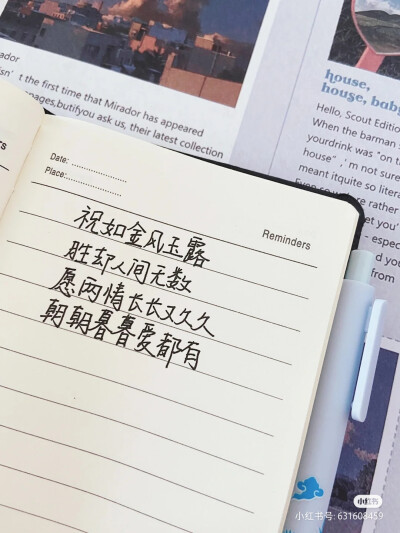 rador
isn't the first time that Mirador has appeared
pages,butifyou ask us, their latest collection
house,
house, baby
Hello, Scout Edition
When the barman
yourdrink was "on t
house", 'm not sure
meant itquite so litera
rather
et you'
- espec
d you
from
Date:
Place:
Reminders
祝如金风玉露
胜却人间无数
愿两情长长又久久
朝朝暮暮爱都有
小红书
小红书号: 631608459